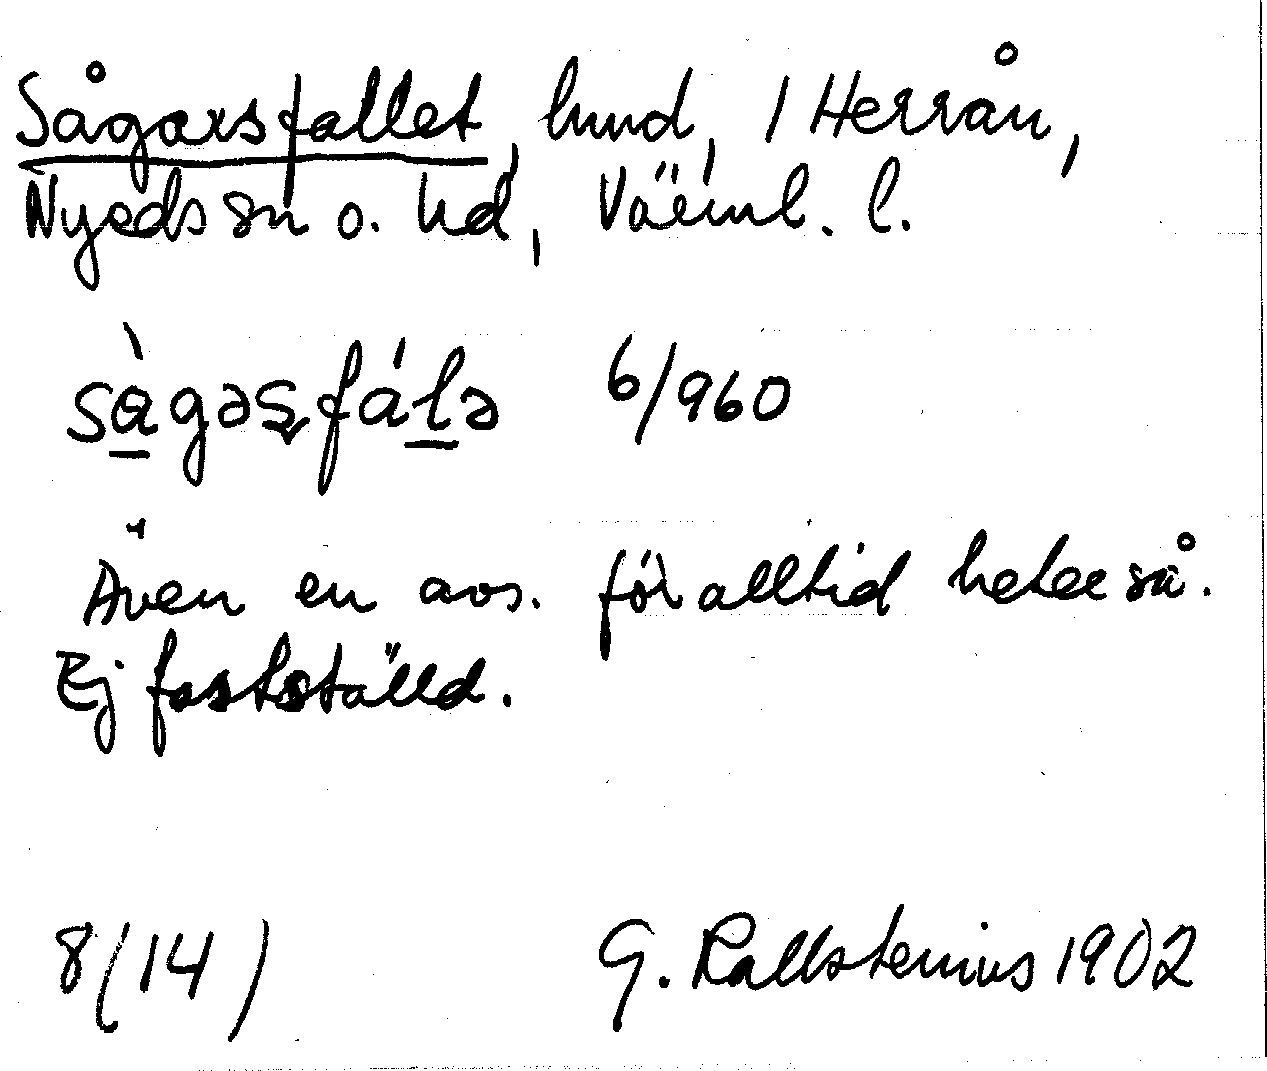 Sågarsfallet, hmd, 1 Herrån,
Nyeds sn o. hd, Värml. l.
sågəșfálə 6/960
Även en avs. för alltid heter så.
Ej fastställd.
8(14) G. Kallstenius 1902